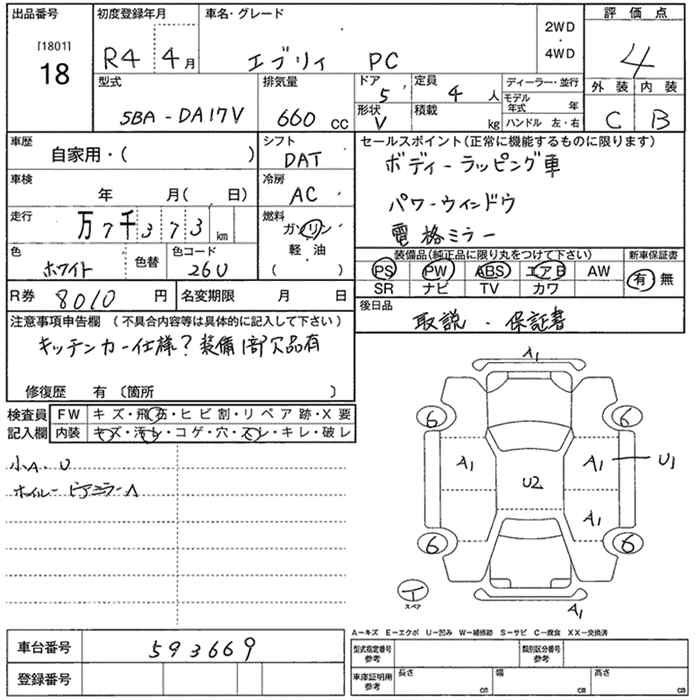 出品番号
[1801]
18
初度登録年月
R4 4月
車名・グレード
エブリイ PC
2WD
・
4WD
評価点
4
外装 内装
C B
型式
5BA-DA17V
排気量
660 cc
ドア 5
定員 4 人
形状 V
積載 kg
ディーラー・並行
モデル年式 年
ハンドル 左・右
車歴
自家用・( )
シフト
DAT
車検
年 月( 日)
冷房
AC
走行
万7千373 km
燃料
ガソリン
軽・油
( )
色
ホワイト
色替
色コード
26U
R券 8010 円
名変期限 月 日
セールスポイント(正常に機能するものに限ります)
ボディーラッピング車
パワーウィンドウ
電格ミラー
装備品(純正品に限り丸をつけて下さい)
新車保証書
PS PW ABS エアB AW
SR ナビ TV カワ
有・無
後日品
取説・保証書
注意事項申告欄 (不具合内容等は具体的に記入して下さい)
キッチンカー仕様?装備1部欠品有
修復歴 有 〔箇所 〕
検査員記入欄
FW キズ・飛石・ヒビ割・リペア跡・X要
内装 キズ・汚レ・コゲ・穴・スレ・キレ・破レ
小A.U
A1
6 6
A1 A1 U1
U2
A1
6 6
スペア
A1
A―キズ E―エクボ U―凹み W―補修跡 S―サビ C―腐食 XX―交換済
車台番号 593669
登録番号
型式指定番号
参考
類別区分番号
参考
車庫証明用
参考
長さ cm
幅 cm
高さ cm